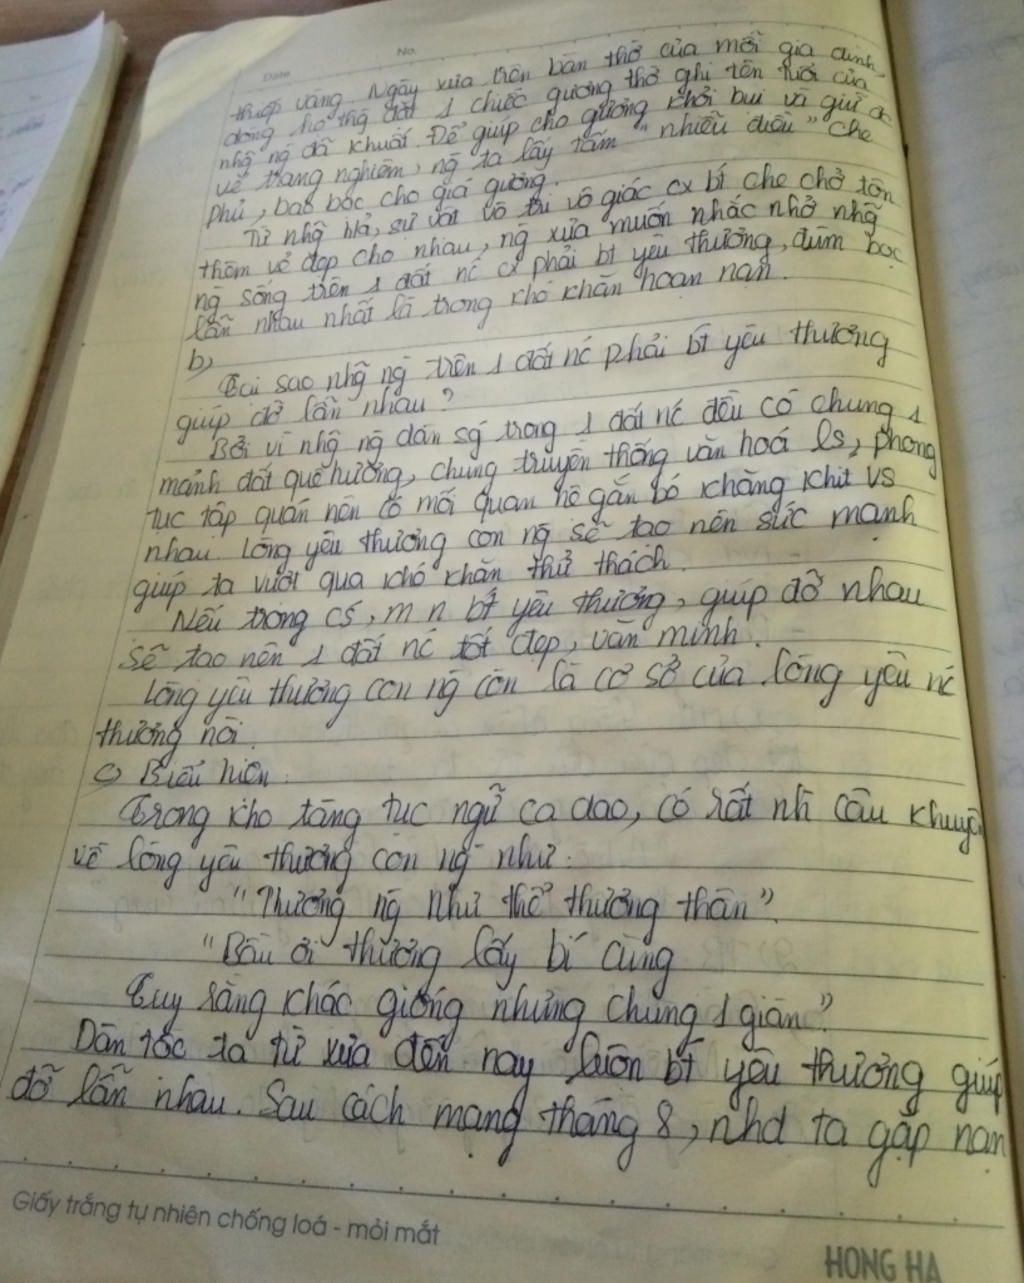 Date No.
thếp vàng. Ngày xưa trên bàn thờ của mỗi gia đình,
dòng họ thg đặt 1 chiếc gương thờ ghi tên tuổi của
nhg ng đã khuất. Để giúp cho gương khỏi bụi và giữ đc
vẻ trang nghiêm, ng ta lấy tấm "nhiễu điều" che
phủ, bao bọc cho giá gương.
Từ nhg h/ả, sự vật vô tri vô giác cx bt che chở tôn
thêm vẻ đẹp cho nhau, ng xưa muốn nhắc nhở nhg
ng sống trên 1 đất nc cx phải bt yêu thương, đùm bọc
lẫn nhau nhất là trong khó khăn hoạn nạn.
b)
Tại sao nhg ng trên 1 đất nc phải bt yêu thương
giúp đỡ lẫn nhau?
Bởi vì nhg ng dân sg trong 1 đất nc đều có chung 1
mảnh đất quê hương, chung truyền thống văn hoá ls, phong
tục tập quán nên có mối quan hệ gắn bó khăng khít vs
nhau. Lòng yêu thương con ng sẽ tạo nên sức mạnh
giúp ta vượt qua khó khăn thử thách.
Nếu trong cs, m n bt yêu thương, giúp đỡ nhau
sẽ tạo nên 1 đất nc tốt đẹp, văn minh.
Lòng yêu thương con ng còn là cơ sở của lòng yêu nc
thương nòi.
c) Biểu hiện:
Trong kho tàng tục ngữ ca dao, có rất nh câu khuyên
về lòng yêu thương con ng như:
"Thương ng như thể thương thân".
"Bầu ơi thương lấy bí cùng
Tuy rằng khác giống nhưng chung 1 giàn".
Dân tộc ta từ xưa đến nay luôn bt yêu thương giúp
đỡ lẫn nhau. Sau cách mạng tháng 8, nhd ta gặp nạn
Giấy trắng tự nhiên chống loá - mỏi mắt
HONG HA